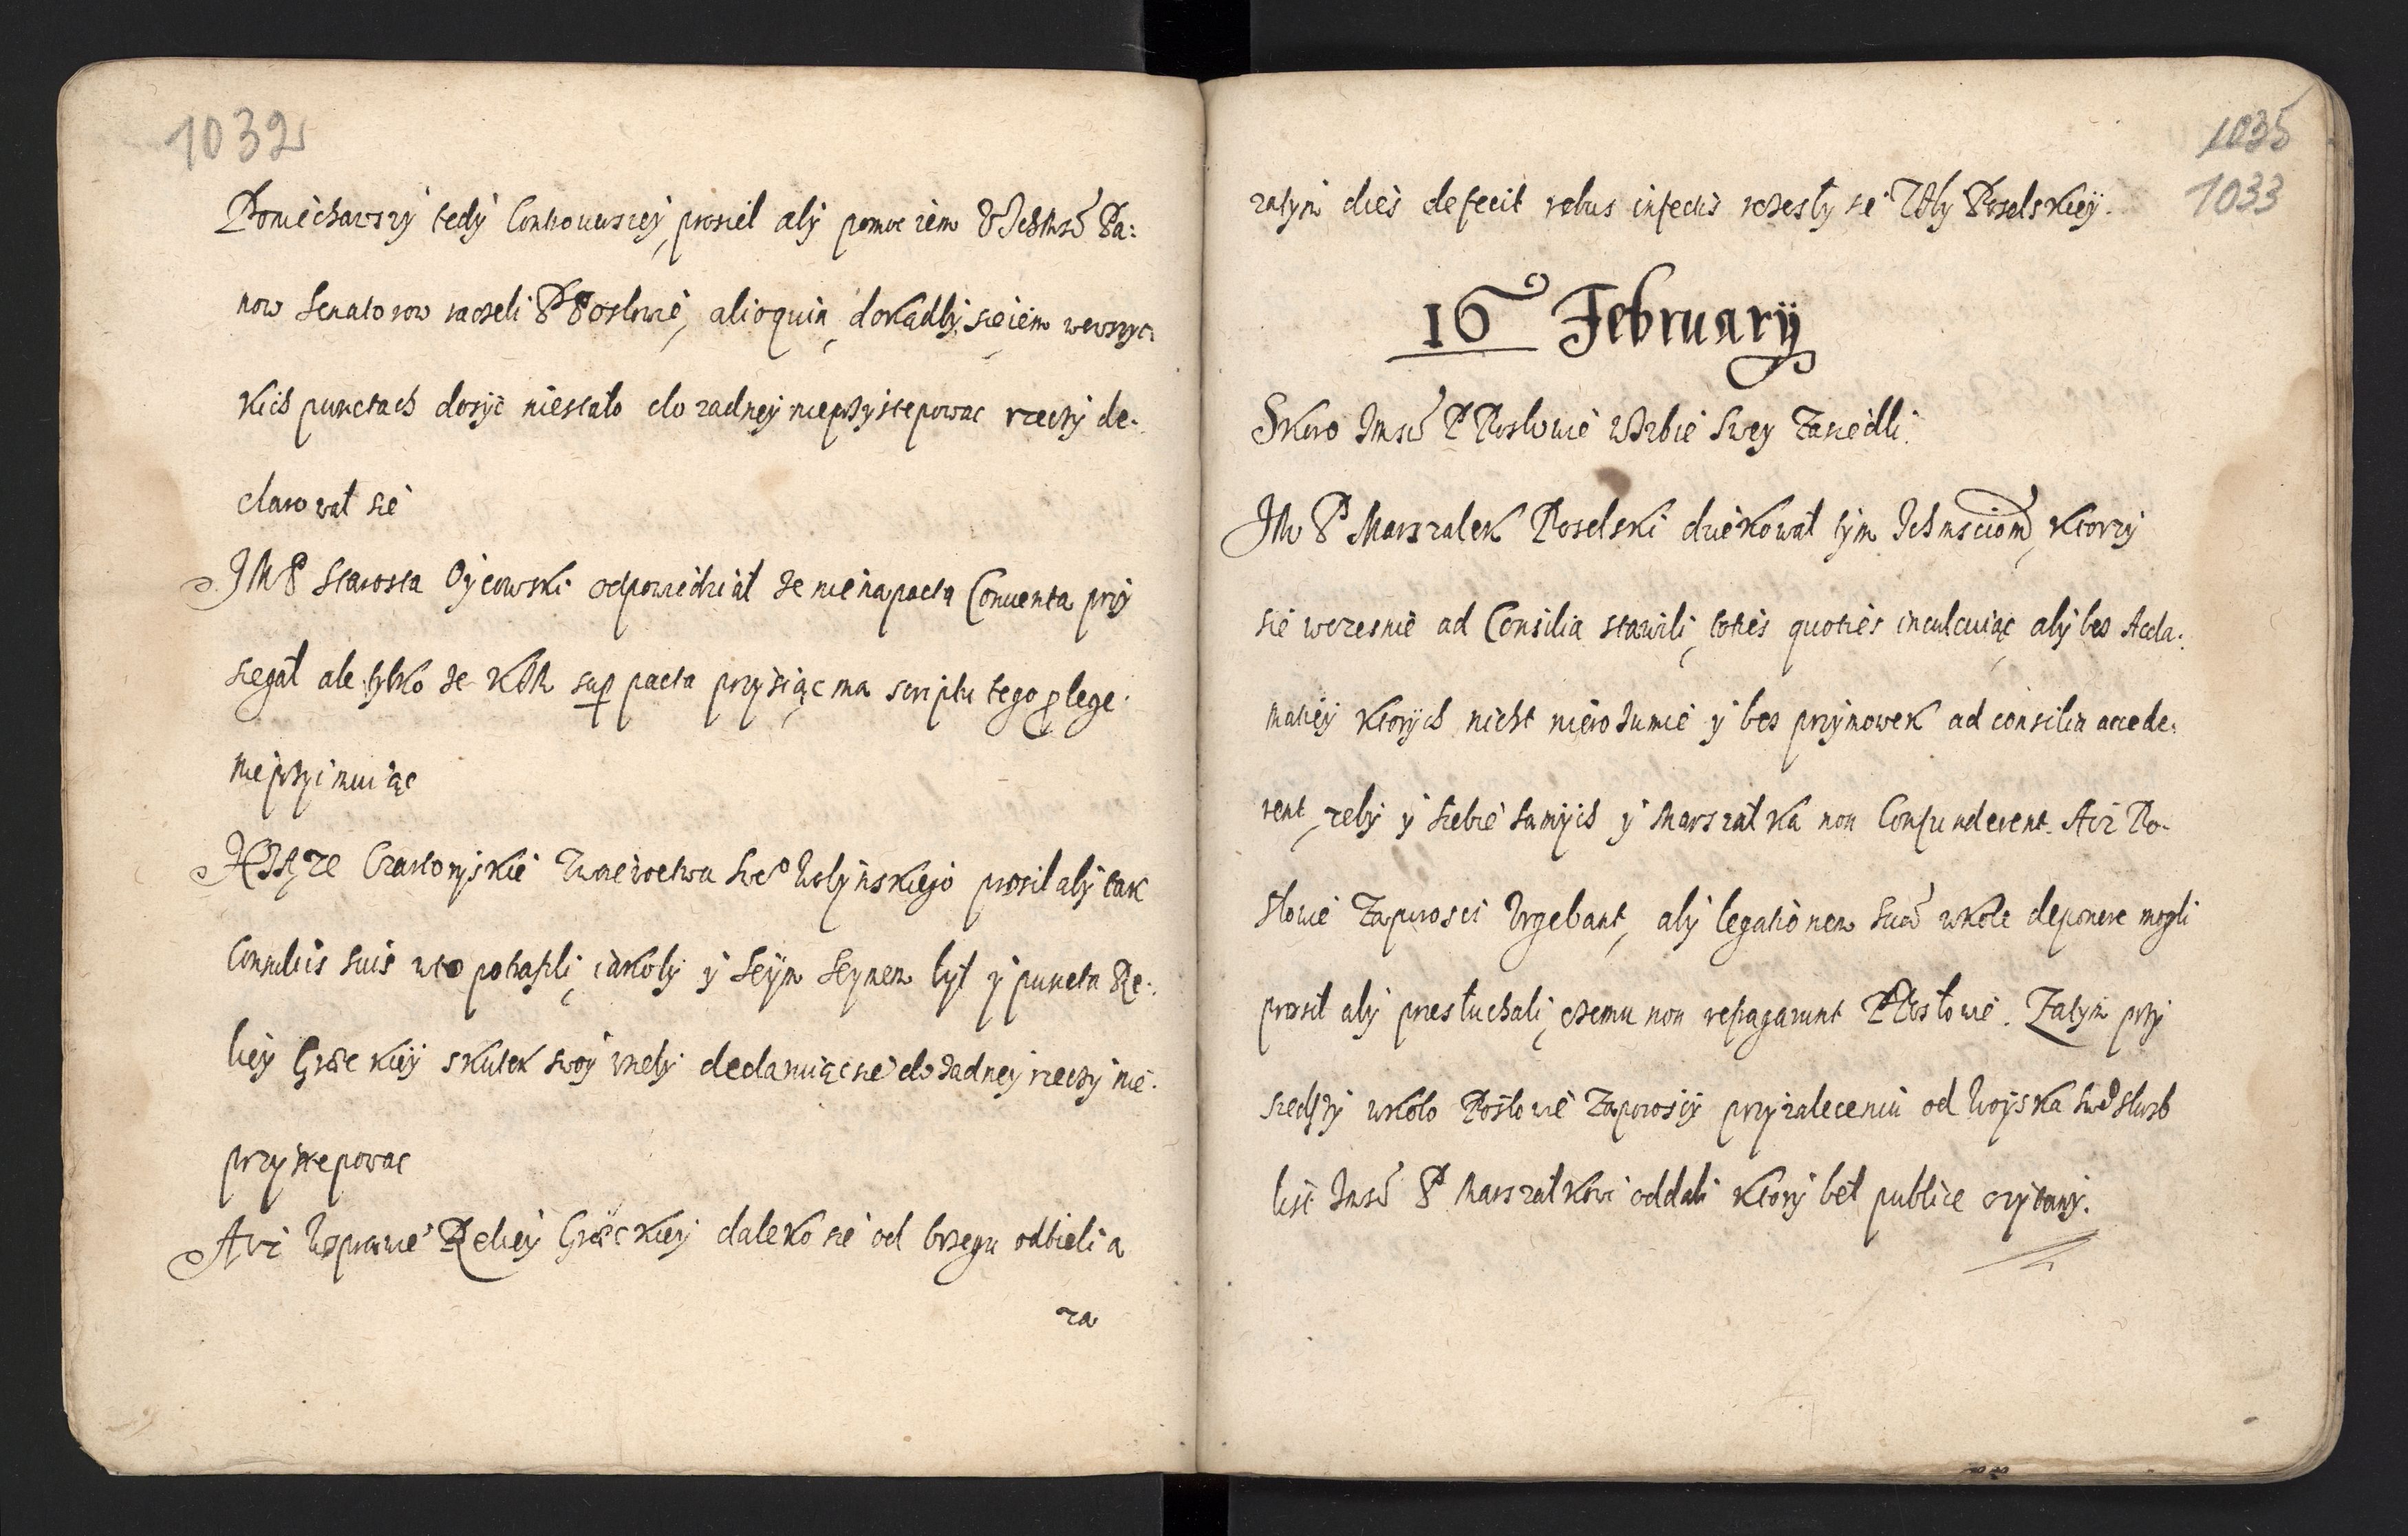 1032
Poniechawszy tedy Controuersiey, prosiel aby pomoc iem V Ichmsć Pa:
now Senatorow raczeli PPosłowie, alioquin, dokądby sie iem wewszyt
kich punctach dosyć niestało do żadney nieprzystępowac rzeczy de:
clarował sie
JMP Starosta Oycowski odpowiedział że nie na pacta Conuenta przy
siegał ale tylko że KJM sup pacta przysiąc ma scriptu tego p lege
nieprzyimuiąc
Xżę ze Czartoryskie Zwoiewoctwa swe° Wołyńskiego prosił aby tak
Consiliis suis wto potrafili, iakoby y Seym Seymem był y puncta Re:
liey Gręckiey skutek swoy wzieły declaruiąc sie do żadney rzeczy nie:
przystepowac
Aże Wsprawie Reliey Gręckiey daleko sie od brzegu odbieli a
za
1035
1033
zatym dies defecit rebus infectis rozeszły sie Izby Poselskiey.
16 February
Skoro Imsć PPosłowie wIzbie swey Zasiedli.
JM P Marszalek Poselski dziekował tym Ichmsciom, ktorzy
sie wczesnie ad Consilia stawili, toties quoties inculcuiąc aby bez Accla:
matiey ktorych nicht nierozumie y bez przymowek ad consilia accede:
rent, zeby y siebie samych y Marszałka non Confunderent. Aże Po:
słowie Zaporosci Vrgebant, aby legationem suam wkole deponere mogli
prosił aby przesłuchali, czemu non repugarunt PPosłowie. Zatym przy
szedszy wkoło Posłowie Zaporoscy przyzaleceniu od Woyska swe° służb
list Imsć P Marszałkowi oddali ktory beł publice czytany.